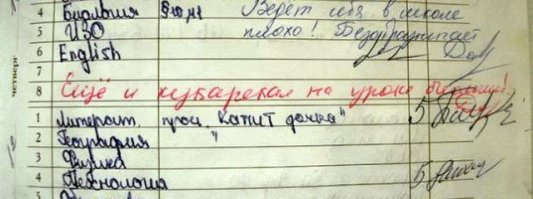 4 Биология §10, №1 Ведёт себя в школе
5 ИЗО плохо! Безобразничает
6 English
7
8 Ещё и кукарекал на уроке биологии!
1 Литерат. проч. "Капит дочка" 5
2 География "
3 Физика
4 Технология 5
5
четверг